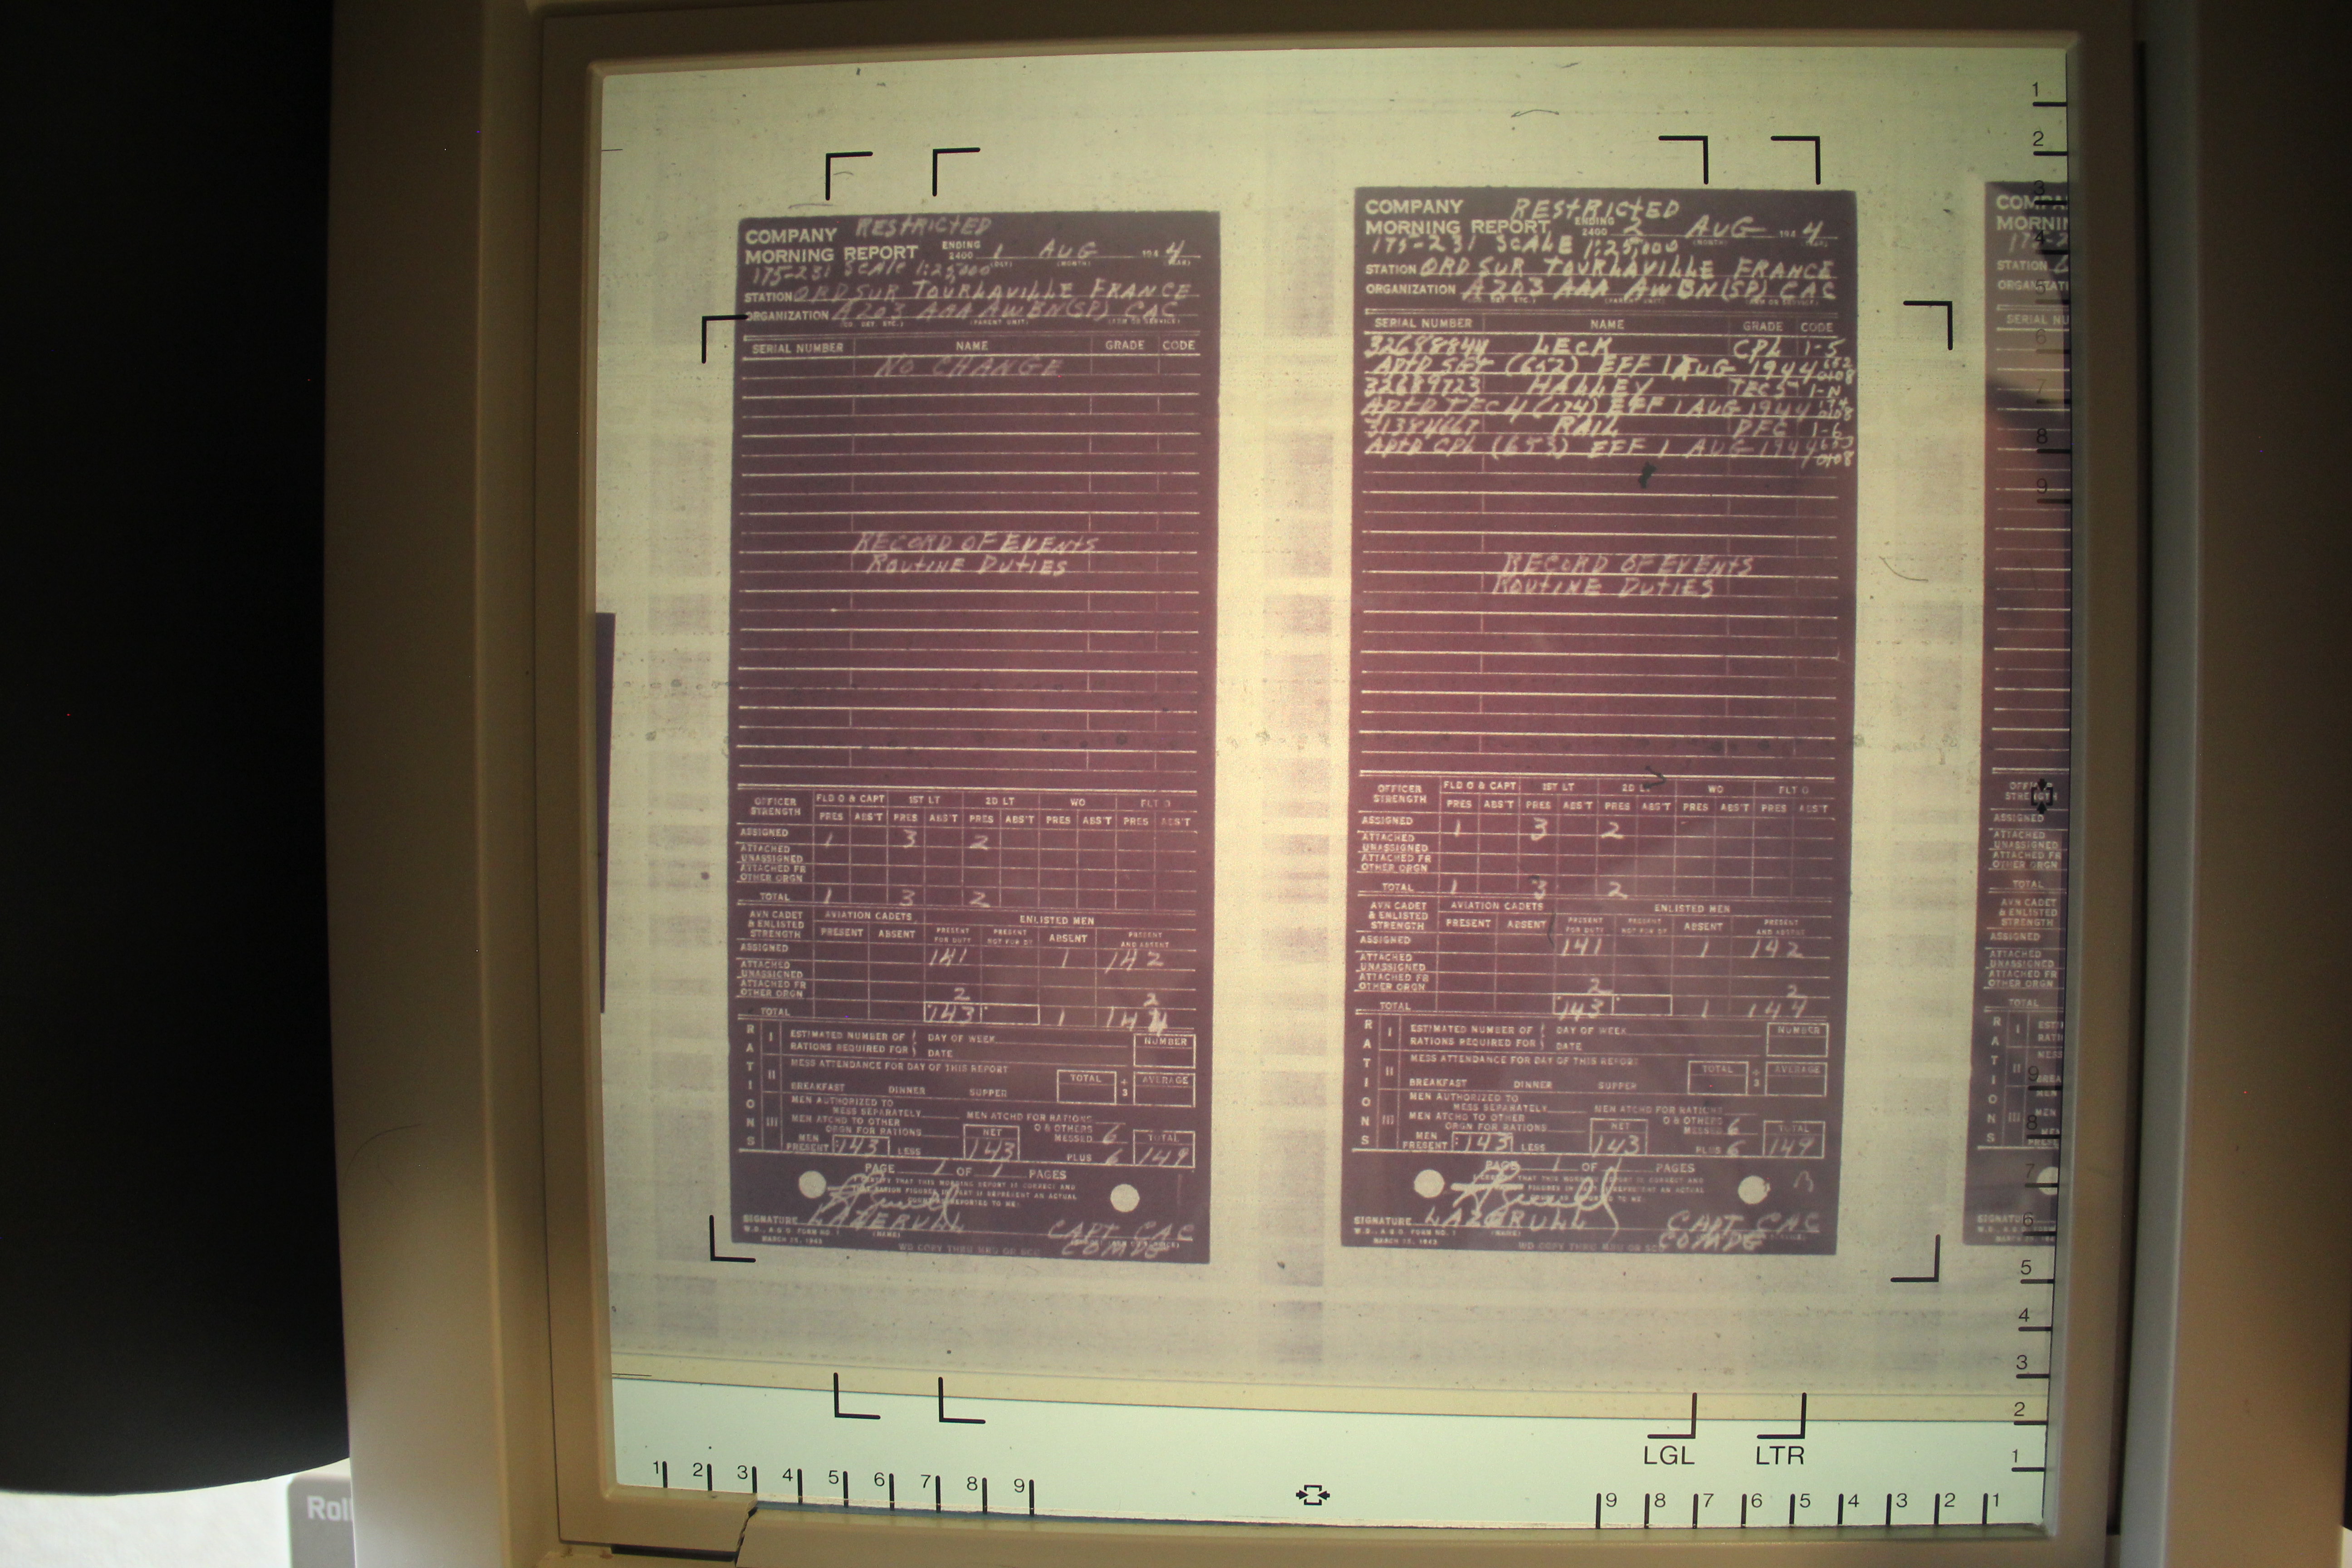 RESTRICTED
COMPANY
MORNING REPORT ENDING 2400 1 AUG 194 4
(DAY) (MONTH) (YEAR)
175-231 SCALE 1:25,000
STATION ORD SUR TOURLAVILLE FRANCE
ORGANIZATION A 203 AAA AW BN (SP) CAC
(CO. DET. ETC.) (PARENT UNIT) (ARM OR SERVICE)
SERIAL NUMBER NAME GRADE CODE
NO CHANGE
RECORD OF EVENTS
ROUTINE DUTIES
OFFICER STRENGTH FLD O & CAPT 1ST LT 2D LT WO FLT O
PRES ABS'T PRES ABS'T PRES ABS'T PRES ABS'T PRES ABS'T
ASSIGNED 1 3 2
ATTACHED UNASSIGNED
ATTACHED FR OTHER ORGN
TOTAL 1 3 2
AVN CADET & ENLISTED STRENGTH AVIATION CADETS ENLISTED MEN
PRESENT ABSENT PRESENT FOR DUTY PRESENT NOT FOR DY ABSENT PRESENT AND ABSENT
ASSIGNED 141 1 142
ATTACHED UNASSIGNED
ATTACHED FR OTHER ORGN 2 2
TOTAL 143 1 144
RATIONS
I ESTIMATED NUMBER OF RATIONS REQUIRED FOR DAY OF WEEK DATE NUMBER
II MESS ATTENDANCE FOR DAY OF THIS REPORT
BREAKFAST DINNER SUPPER TOTAL ÷ 3 AVERAGE
III MEN AUTHORIZED TO MESS SEPARATELY MEN ATCHD FOR RATIONS
MEN ATCHD TO OTHER ORGN FOR RATIONS NET O & OTHERS MESSED 6 TOTAL
MEN PRESENT 143 LESS 143 PLUS 6 149
PAGE 1 OF 1 PAGES
I CERTIFY THAT THIS MORNING REPORT IS CORRECT AND
SIGNATURE LAZERULL CAPT CAC
COMDG
W.D., A.G.O. FORM NO. 1
MARCH 25, 1943
WD COPY THRU MRU OR SCU
RESTRICTED
COMPANY
MORNING REPORT ENDING 2400 2 AUG 194 4
175-231 SCALE 1:25,000
STATION ORD SUR TOURLAVILLE FRANCE
ORGANIZATION A 203 AAA AW BN (SP) CAC
(CO. DET. ETC.) (PARENT UNIT) (ARM OR SERVICE)
SERIAL NUMBER NAME GRADE CODE
32688844 LECK CPL 1-5
APTD SGT (652) EFF 1 AUG 1944 652 0108
32689723 HALLEY TEC5 1-N
APTD TEC 4 (174) EFF 1 AUG 1944 174 0108
RAIL PFC 1-6
APTD CPL (653) EFF 1 AUG 1944 653 0108
RECORD OF EVENTS
ROUTINE DUTIES
OFFICER STRENGTH FLD O & CAPT 1ST LT 2D LT WO FLT O
PRES ABS'T PRES ABS'T PRES ABS'T PRES ABS'T PRES ABS'T
ASSIGNED 1 3 2
ATTACHED UNASSIGNED
ATTACHED FR OTHER ORGN
TOTAL 1 3 2
AVN CADET & ENLISTED STRENGTH AVIATION CADETS ENLISTED MEN
PRESENT ABSENT PRESENT FOR DUTY PRESENT NOT FOR DY ABSENT PRESENT AND ABSENT
ASSIGNED 141 1 142
ATTACHED UNASSIGNED
ATTACHED FR OTHER ORGN 2 2
TOTAL 143 1 144
RATIONS
I ESTIMATED NUMBER OF RATIONS REQUIRED FOR DAY OF WEEK DATE NUMBER
II MESS ATTENDANCE FOR DAY OF THIS REPORT
BREAKFAST DINNER SUPPER TOTAL ÷ 3 AVERAGE
III MEN AUTHORIZED TO MESS SEPARATELY MEN ATCHD FOR RATIONS
MEN ATCHD TO OTHER ORGN FOR RATIONS NET O & OTHERS MESSED 6 TOTAL
MEN PRESENT 143 LESS 143 PLUS 6 149
PAGE 1 OF 1 PAGES
SIGNATURE LAZERULL CAPT CAC
COMDG
W.D., A.G.O. FORM NO. 1
MARCH 25, 1943
WD COPY THRU MRU OR SCU
LGL LTR
1 2 3 4 5 6 7 8 9
9 8 7 6 5 4 3 2 1
Roll